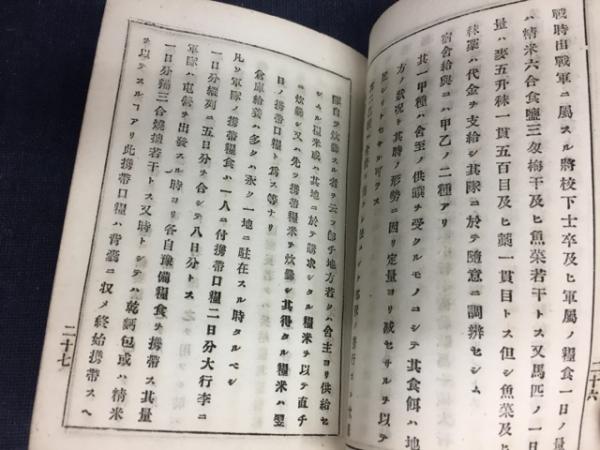 戰時出戰軍ニ屬スル將校下士卒及ヒ軍屬ノ糧食一日ノ量
ハ精米六合食鹽三匁梅干及ヒ魚菜若干トス又馬匹ノ一日
量ハ麥五升秣一貫五百目及ヒ藁一貫目トス但シ魚菜及ヒ
秣藁ハ代金ヲ支給シ其隊ニ於テ隨意ニ調辨セシム
宿舍給與ニハ甲乙ノ二種アリ
其一甲種ハ舍主ノ供饋ヲ受クルモノニシテ其食餌ハ地
方ノ狀況ト其時ノ形勢ニ因リ定量ヨリ減セサルヲ以テ
足レリトセサル可ラス
二十六
隊自ラ炊爨スル者ヲ云フ卽チ地方若クハ舍主ヨリ供給セ
シムル糧米或ハ其地ニ於テ購求シタル糧米ヲ以テ直チ
ニ炊爨シ又ハ先ツ携帶糧米ヲ炊爨シ其得タル糧米ハ翌
日ノ携帶口糧ト爲ス等ナリ
倉庫給養ハ多クハ永ク一地ニ駐在スル時タルベシ
凡ソ軍隊ノ携帶糧食ハ一人ニ付携帶口糧二日分大行李ニ
一日分縱列ニ五日分ヲ合シテ八日分トス
軍隊ハ屯營ヲ出發スル時ヨリ各自豫備糧食ヲ携帶ス其量
一日分糒三合燒鹽若干トス又時トシテハ乾麪包或ハ精米
ヲ以テスルコアリ此携帶口糧ハ背嚢ニ収メ終始携帶スヘ
二十七